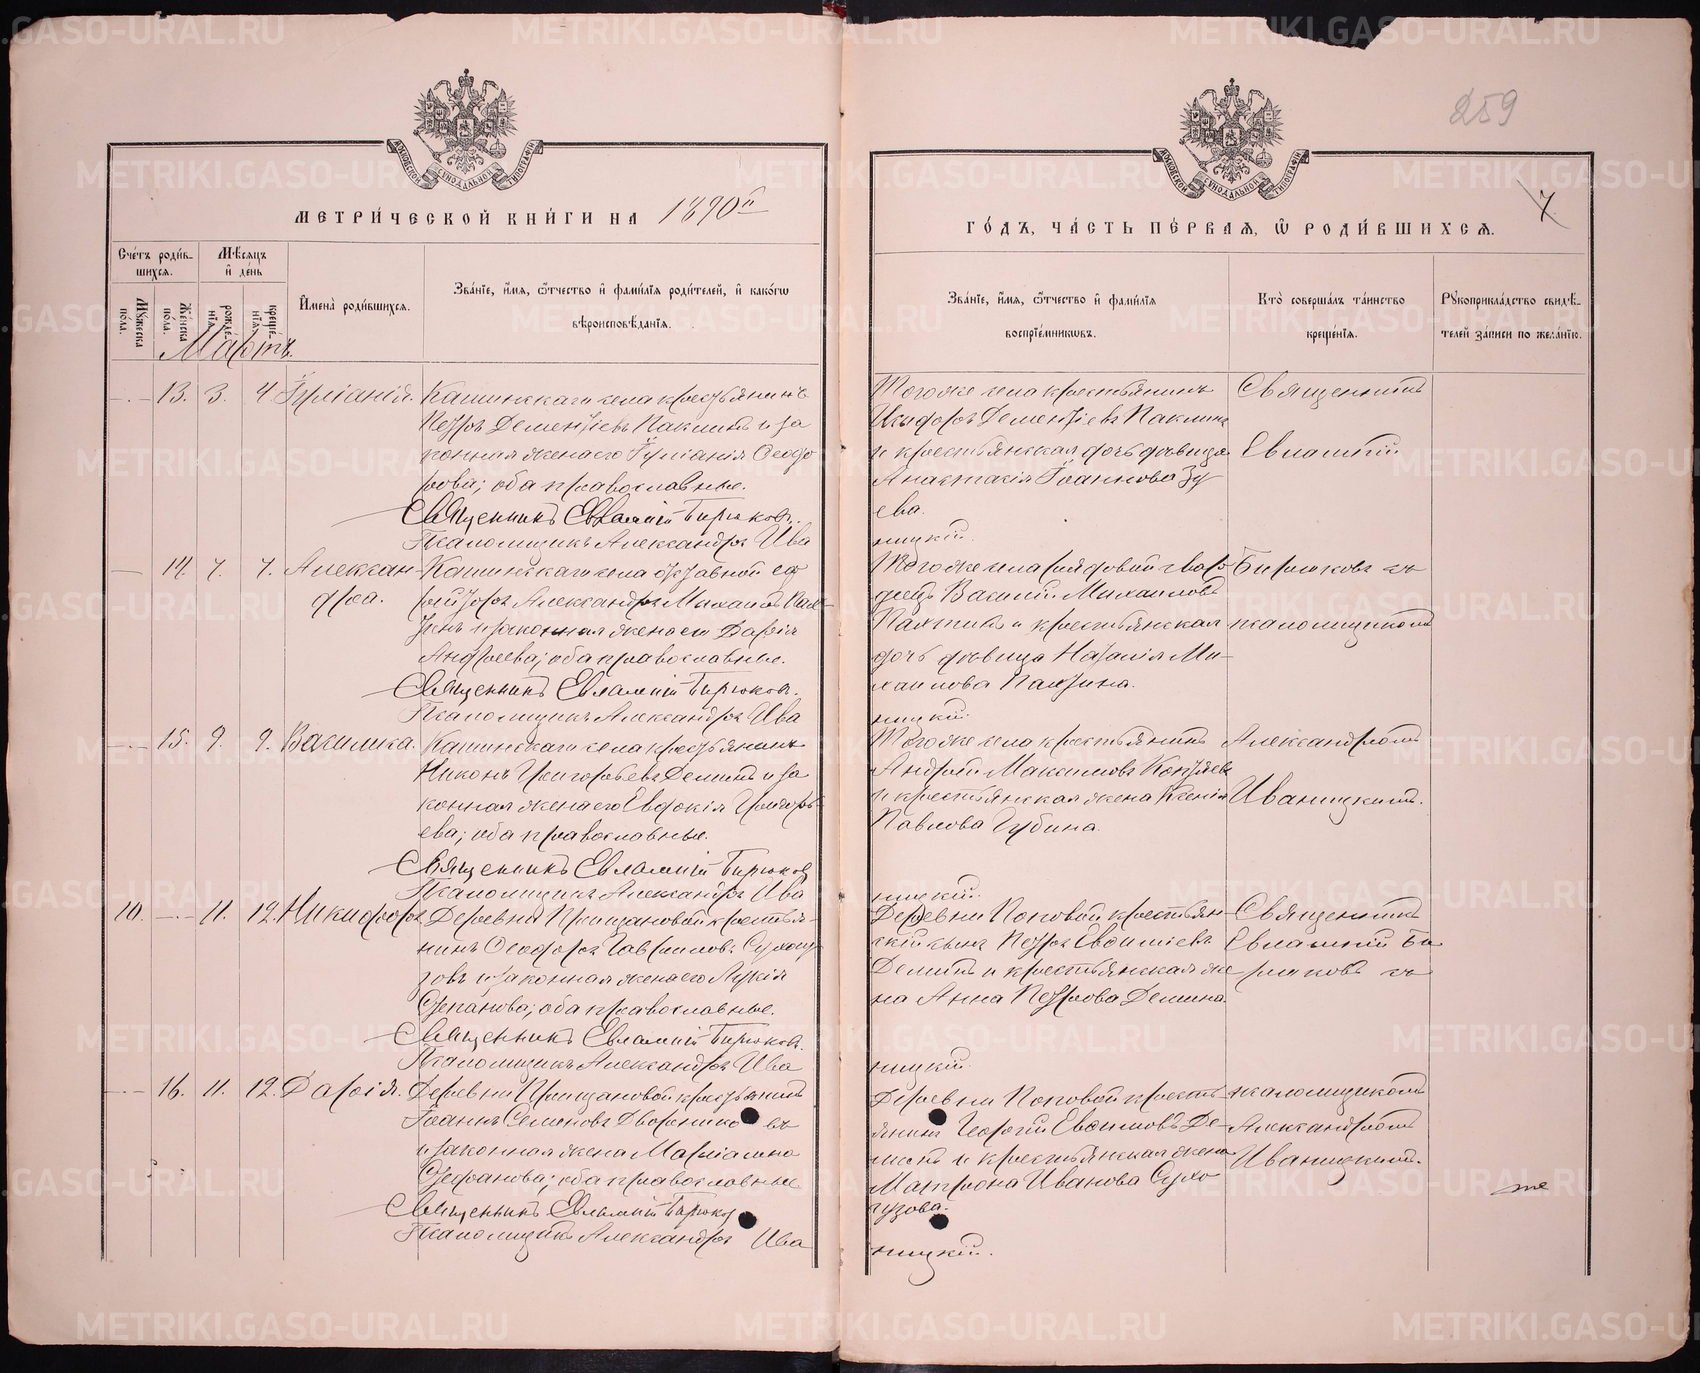 259
МЕТРИ́ЧЕСКОЙ КНИ́ГИ НА 1890й
ГО́ДЪ, ЧА́СТЬ ПЕ́РВАѦ, Ѿ РОДИ́ВШИХСѦ.
7.
Сче́тъ роди́вшихся.
Мужеска пола.
Женска пола.
Мѣсяцъ и день
рожденія.
крещенія.
Имена родившихся.
Званіе, имя, отчество и фамилія родителей, и какого
вѣроисповѣданія.
Званіе, имя, отчество и фамилія
воспріемниковъ.
Кто совершалъ таинство
крещенія.
Рукоприкладство свидѣ-
телей записи по желанію.
Мартъ.
13. 3. 4. Іуліанія.
Кашинскаго села крестьянинъ
Петръ Дементіевъ Паклинъ и за
конная жена его Іуліанія Ѳеодо
рова; оба православные.
Священникъ Евлампій Бирюковъ.
Псаломщикъ Александръ Ива
Тогоже села крестьянинъ
Исидоръ Дементіевъ Паклинъ
и крестьянская дочь дѣвица
Анастасія Іоаннова Зу
ева.
ницкій.
Священникъ
Евлампій
14. 7. 7. Алексан-
дра.
Кашинскаго села отставной еф
рейторъ Александръ Михаиловъ Пах-
тинъ и законная жена его Дарія
Андреева; оба православные.
Священникъ Евлампій Бирюковъ.
Псаломщикъ Александръ Ива
Тогоже села рядовой
Василій Михаиловъ
Пахтинъ и крестьянская
дочь дѣвица Наталія Ми-
хаилова Пахтина.
ницкій.
Бирюковъ съ
псаломщикомъ
15. 9. 9. Василиса.
Кашинскаго села крестьянинъ
Никонъ Григорьевъ Деминъ и за
конная жена его Евдокія Григорь
ева; оба православные.
Священникъ Евлампій Бирюков
Псаломщикъ Александръ Ива
Тогоже села крестьянинъ
Андрей Максимовъ
и крестьянская жена Ксенія
Павлова Губина.
ницкій.
Александромъ
Иваницкимъ.
10. 11. 12. Никифоръ
Деревни Прищановой крестья-
нинъ Ѳеодоръ Гавриловъ Сухогу
зовъ и законная жена его Лукія
Стефанова; оба православные.
Священникъ Евлампій Бирюковъ.
Псаломщикъ Александръ Ива
Деревни Поповой крестьян-
скій сынъ Петръ Евдимiевъ
Деминъ и крестьянская же
на Анна Петрова Демина.
ницкій.
Священникъ
Евлампій Би
рюковъ съ
16. 11. 12. Дарія.
Деревни Прищановой крестьянинъ
Іоаннъ Семеновъ Дворнико въ
и законная жена Маріамна
Стефанова; оба православные
Священникъ Евлампій Бирюков
Псаломщикъ Александръ Ива
Деревни Поповой кресть-
янинъ Георгій Евдимовъ Де-
минъ и крестьянская жена
Матрона Иванова Сухо
гузова.
ницкій.
псаломщикомъ
Александромъ
Иваницкимъ.
METRIKI.GASO-URAL.RU